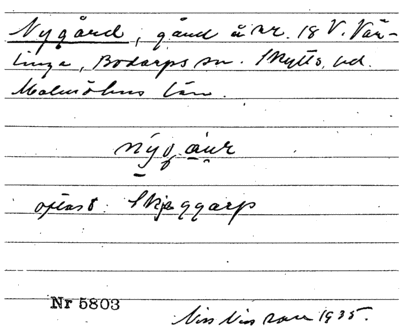 Nygård, gård å nr. 18 V. Vär-
linge, Bodarps sn. Skytts hd.
Malmöhus län.
oftast: Skjeggarp
Nr 5803
1935.